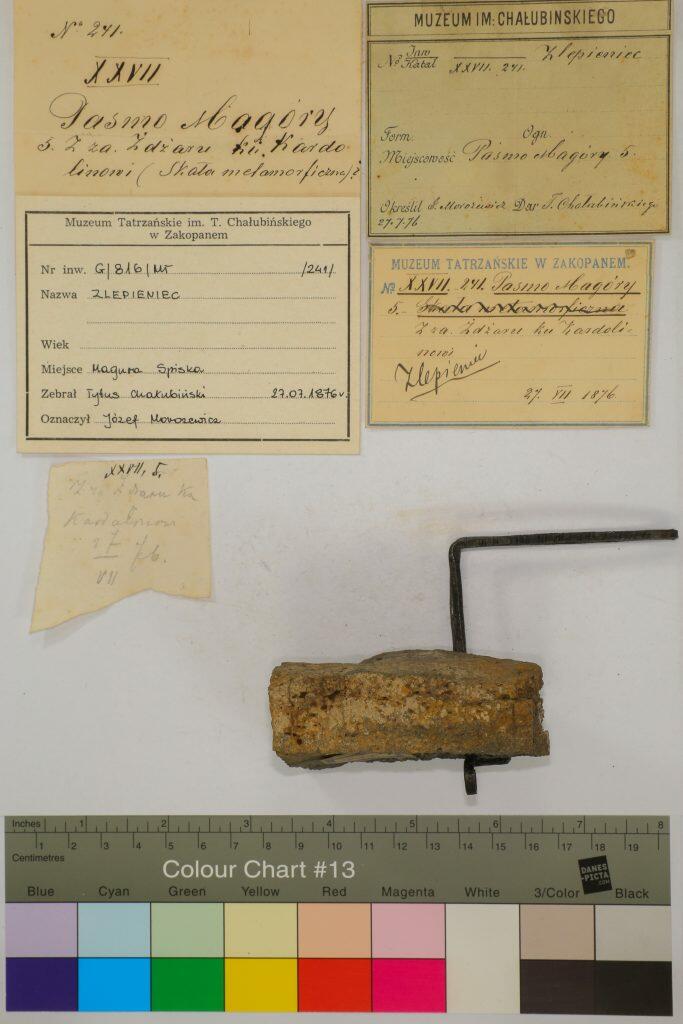 No 241.
XXVII
Pasmo Magóry
5. Z za. Żdżaru ku Kardo-
linowi (Skała metamorficzna)?
MUZEUM IM: CHAŁUBIŃSKIEGO
No Inw
Katal XXVII. 241. Zlepieniec
Form. Ogn.
Miejscowość Pasmo Magóry 5.
Określił J. Morozewicz Dar T. Chałubińskiego
27-7-76
Muzeum Tatrzańskie im. T. Chałubińskiego
w Zakopanem
Nr inw. G/816/MT /241/
Nazwa ZLEPIENIEC
Wiek
Miejsce Magura Spiska
Zebrał Tytus Chałubiński 27.07.1876r.
Oznaczył Józef Morozewicz
MUZEUM TATRZAŃSKIE W ZAKOPANEM.
No XXVII. 241. Pasmo Magóry
5. Skała metamorficzna
Z za. Żdżaru ku Kardoli-
nowi
Zlepieniec
27. VII 1876.
XXVII, 5.
Z za Żdżaru ku
Kardolinowi
27 76.
VII
Inches 1 2 3 4 5 6 7 8
Centimetres 1 2 3 4 5 6 7 8 9 10 11 12 13 14 15 16 17 18 19
Colour Chart #13
DANES
-PICTA
.COM
Blue Cyan Green Yellow Red Magenta White 3/Color Black